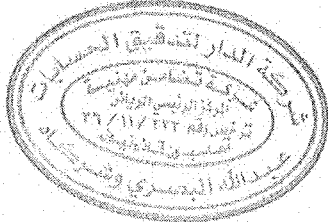 شركة الدار لتدقيق الحسابات
شركة تضامن مهنية
المركز الرئيسي الرياض
ترخيص رقم ٣٢٣ /١١/ ٣٦
عبدالله البصري وشركاه